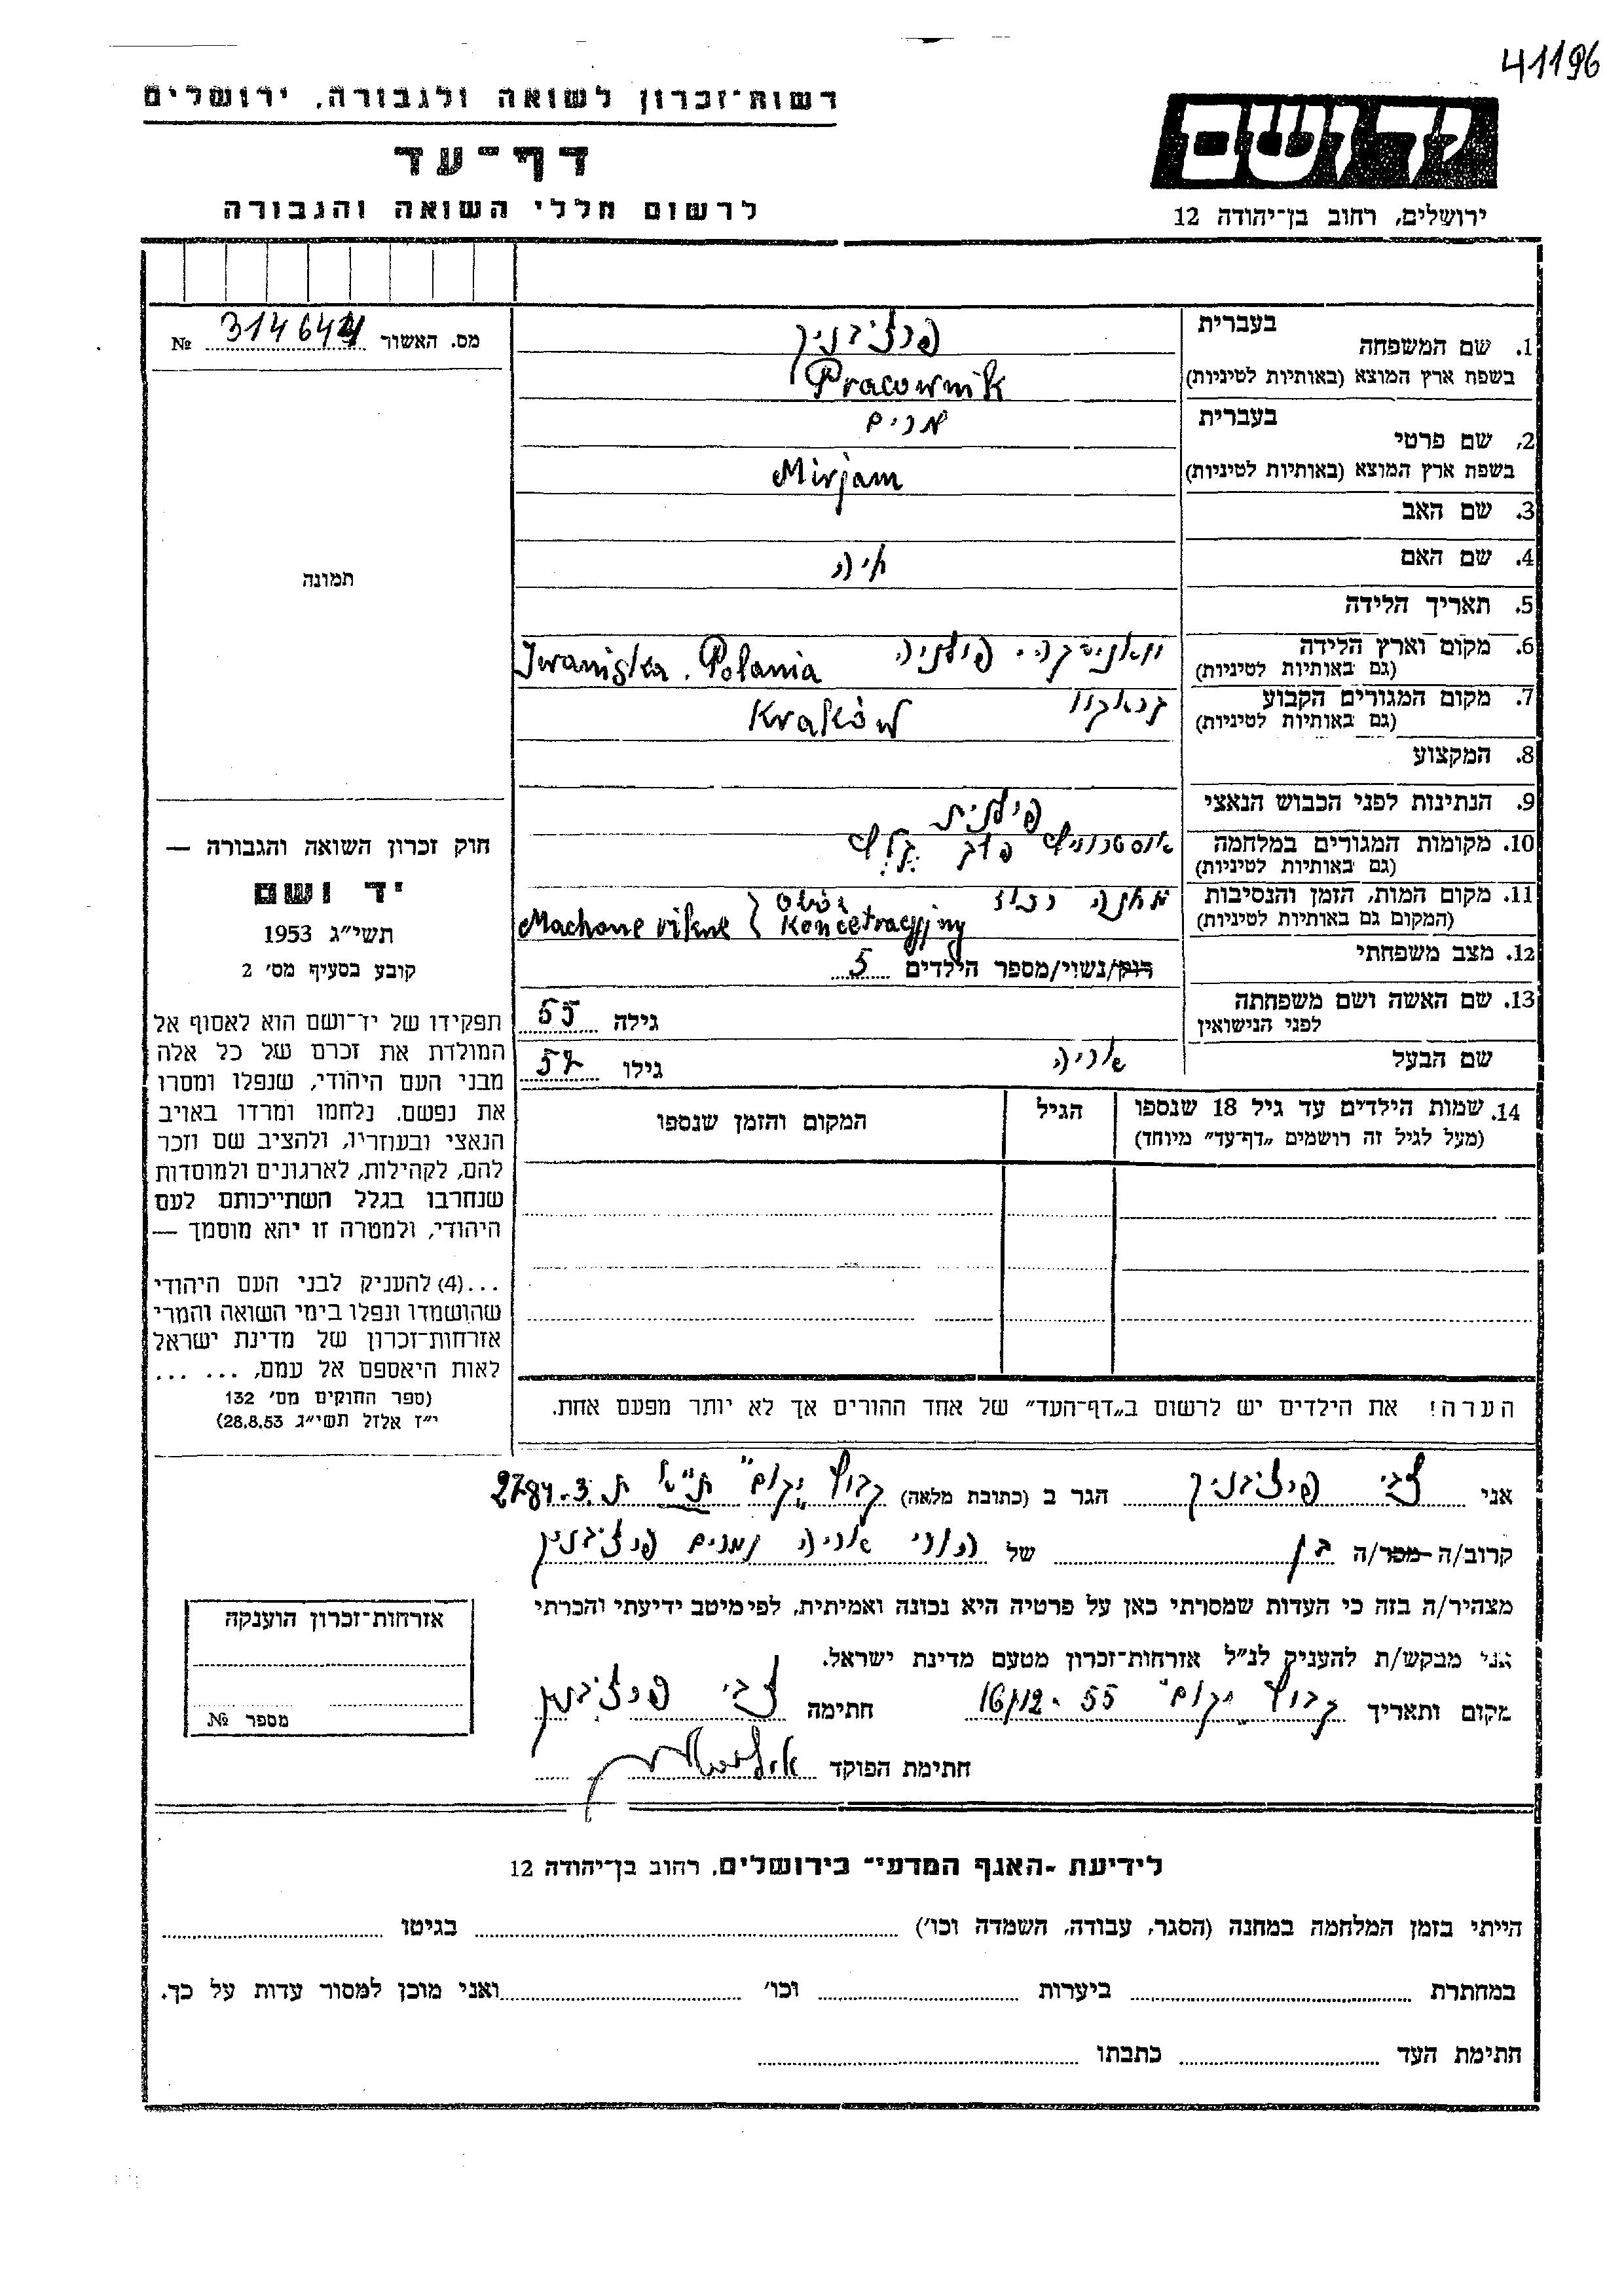 41196
יד ושם
ירושלים, רחוב בן־יהודה 12
רשות־זכרון לשואה ולגבורה, ירושלים
דף־עד
לרשום חללי השואה והגבורה
מס. האשור № 314644
תמונה
1. שם המשפחה בעברית
פרצובניק
בשפת ארץ המוצא (באותיות לטיניות)
Pracownik
2. שם פרטי בעברית
מרים
בשפת ארץ המוצא (באותיות לטיניות)
Mirjam
3. שם האב
4. שם האם
חיה
5. תאריך הלידה
6. מקום וארץ הלידה
(גם באותיות לטיניות)
פולניה Iwaniska. Polania
7. מקום המגורים הקבוע
(גם באותיות לטיניות)
קראקוו Kraków
8. המקצוע
9. הנתינות לפני הכבוש הנאצי
פולנית
10. מקומות המגורים במלחמה
(גם באותיות לטיניות)
11. מקום המות, הזמן והנסיבות
(המקום גם באותיות לטיניות)
מחנה רכוז Obóz
Machane rikuz } Koncetracyjny
12. מצב משפחתי
רוק/נשוי/מספר הילדים 5
13. שם האשה ושם משפחתה
לפני הנישואין
גילה 55
שם הבעל
אריה גילו 57
14. שמות הילדים עד גיל 18 שנספו
(מעל לגיל זה רושמים „דף־עד” מיוחד)
הגיל
המקום והזמן שנספו
הערה! את הילדים יש לרשום ב„דף־העד” של אחד ההורים אך לא יותר מפעם אחת.
חוק זכרון השואה והגבורה —
יד ושם
תשי״ג 1953
קובע בסעיף מס׳ 2
תפקידו של יד־ושם הוא לאסוף אל
המולדת את זכרם של כל אלה
מבני העם היהודי, שנפלו ומסרו
את נפשם. נלחמו ומרדו באויב
הנאצי ובעוזריו, ולהציב שם וזכר
להם, לקהילות, לארגונים ולמוסדות
שנחרבו בגלל השתייכותם לעם
היהודי, ולמטרה זו יהא מוסמך —
...(4) להעניק לבני העם היהודי
שהושמדו ונפלו בימי השואה והמרי
אזרחות־זכרון של מדינת ישראל
לאות היאספם אל עמם, ... ...
(ספר החוקים מס׳ 132
י״ז אלול תשי״ג 28.8.53)
אני צבי פרצובניק הגר ב (כתובת מלאה) קבוץ „יקום” ת״א ת. ד. 2784
קרוב/ה מכר/ה בן של הורי אריה ומרים פרצובניק
מצהיר/ה בזה כי העדות שמסרתי כאן על פרטיה היא נכונה ואמיתית, לפי מיטב ידיעתי והכרתי
אני מבקש/ת להעניק לנ״ל אזרחות־זכרון מטעם מדינת ישראל.
מקום ותאריך קבוץ „יקום” 16/12-55 חתימה צבי פרצובניק
חתימת הפוקד
אזרחות־זכרון הוענקה
מספר №
לידיעת ״האגף המדעי״ בירושלים, רחוב בן־יהודה 12
הייתי בזמן המלחמה במחנה (הסגר, עבודה, השמדה וכו׳) בגיטו
במחתרת ביערות וכו׳ ואני מוכן למסור עדות על כך.
חתימת העד כתבתו